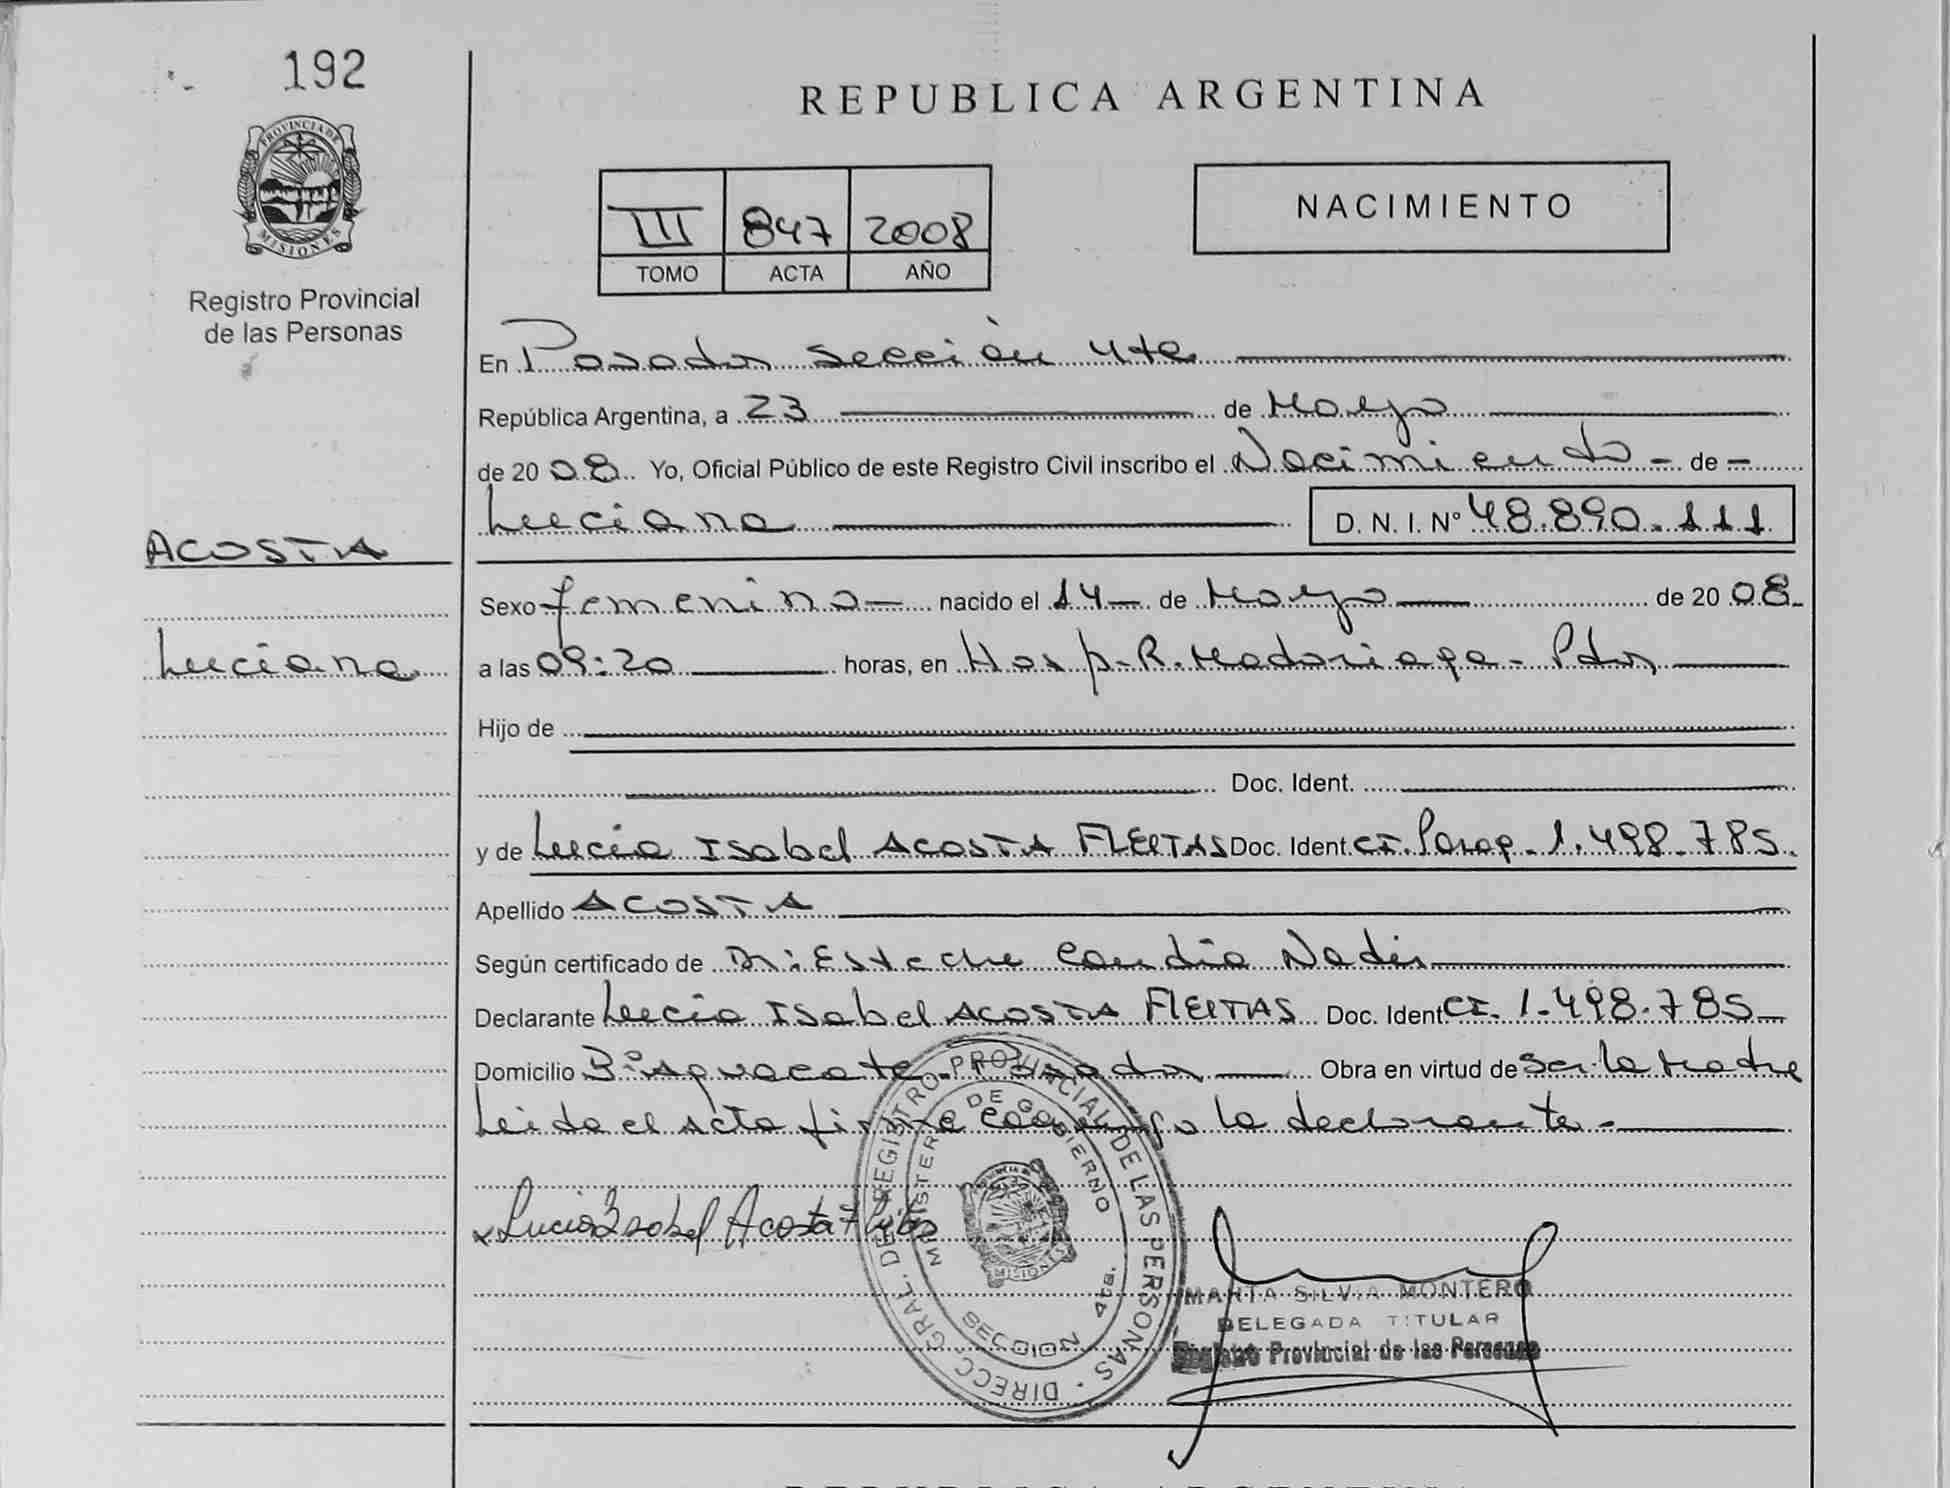 192
PROVINCIA DE
MISIONES
Registro Provincial
de las Personas
ACOSTA
Luciana
REPUBLICA ARGENTINA
III 847 2008
TOMO ACTA AÑO
NACIMIENTO
En Posadas sección 4ta
República Argentina, a 23 de Mayo
de 2008 Yo, Oficial Público de este Registro Civil inscribo el Nacimiento - de -
Luciana D. N. I. Nº 48.890.111
Sexo femenino - nacido el 14 - de Mayo de 2008
a las 09:20 horas, en Hosp. R. Madariaga - Pdas
Hijo de
Doc. Ident.
y de Lucia Isabel ACOSTA FLEITAS Doc. Ident. CI. Parag. 1.498.785.
Apellido ACOSTA
Según certificado de Dr: Esteche Candia Nadis
Declarante Lucia Isabel ACOSTA FLEITAS Doc. Ident. CI. 1.498.785
Domicilio Bº Aguacate - Posadas Obra en virtud de Ser la Madre
Leida el Acta firma conmigo la declarante.
x Lucia Isabel Acosta Fleitas
DIRECC. GRAL. DE REGISTRO PROVINCIAL DE LAS PERSONAS
MINISTERIO DE GOBIERNO
MISIONES
SECCION 4ta.
MARTA SILVIA MONTERO
DELEGADA TITULAR
Registro Provincial de las Personas
REPUBLICA ARGENTINA